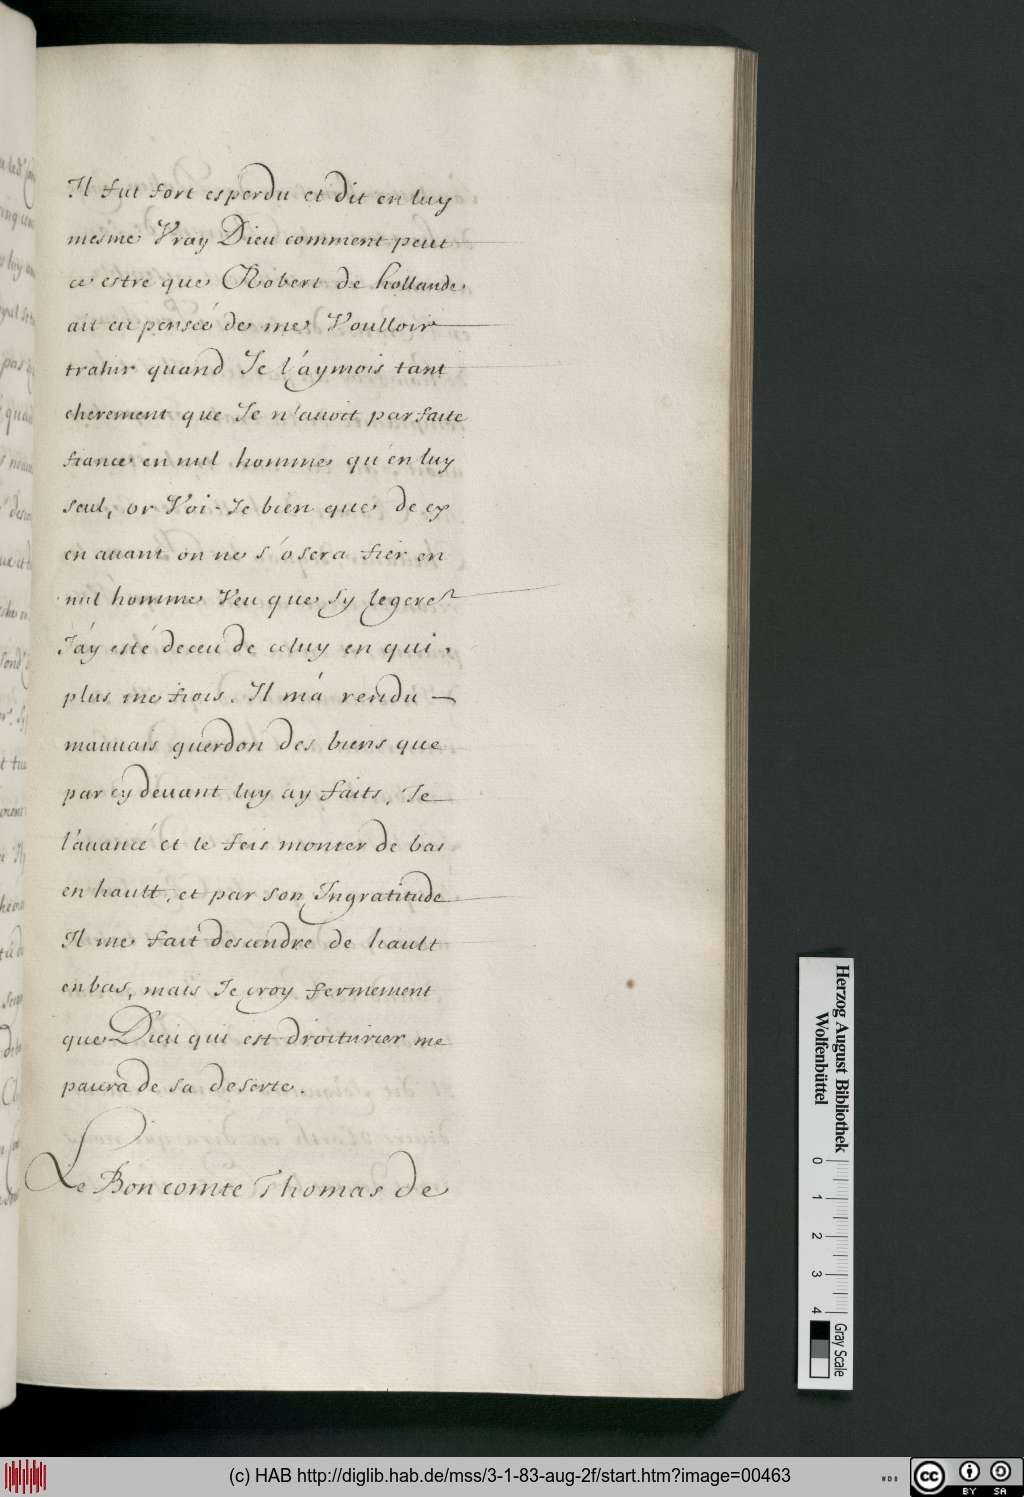 Il fut fort esperdu et dit en luy
mesme Vray Dieu comment peut
ce estre que Robert de hollande
ait eu penseé de me Voulloir
trahir quand Je l'áymois tant
cherement que Je n'auoit parfaite
fiance en nul homme qu'en luy
seul, or Voi-Je bien que de cy
en auant on ne s'osera fier en
nul homme Veu que sy legere.t
J'áy esté deceu de celuy en qui
plus me fiois. Il m'á rendu
mauuais guerdon des biens que
par cy deuant luy ay faits, Je
l'áuancé et le feis monter de bas
en hault, et par son Ingratitude
Il me fait descendre de hault
en bas, mais Je croy fermement
que Dieu qui est droiturier me
paiera de sa deserte.
Le Bon comte Thomas de
Herzog August Bibliothek
Wolfenbüttel
0 1 2 3 4
Gray Scale
(c) HAB http://diglib.hab.de/mss/3-1-83-aug-2f/start.htm?image=00463
cc BY SA